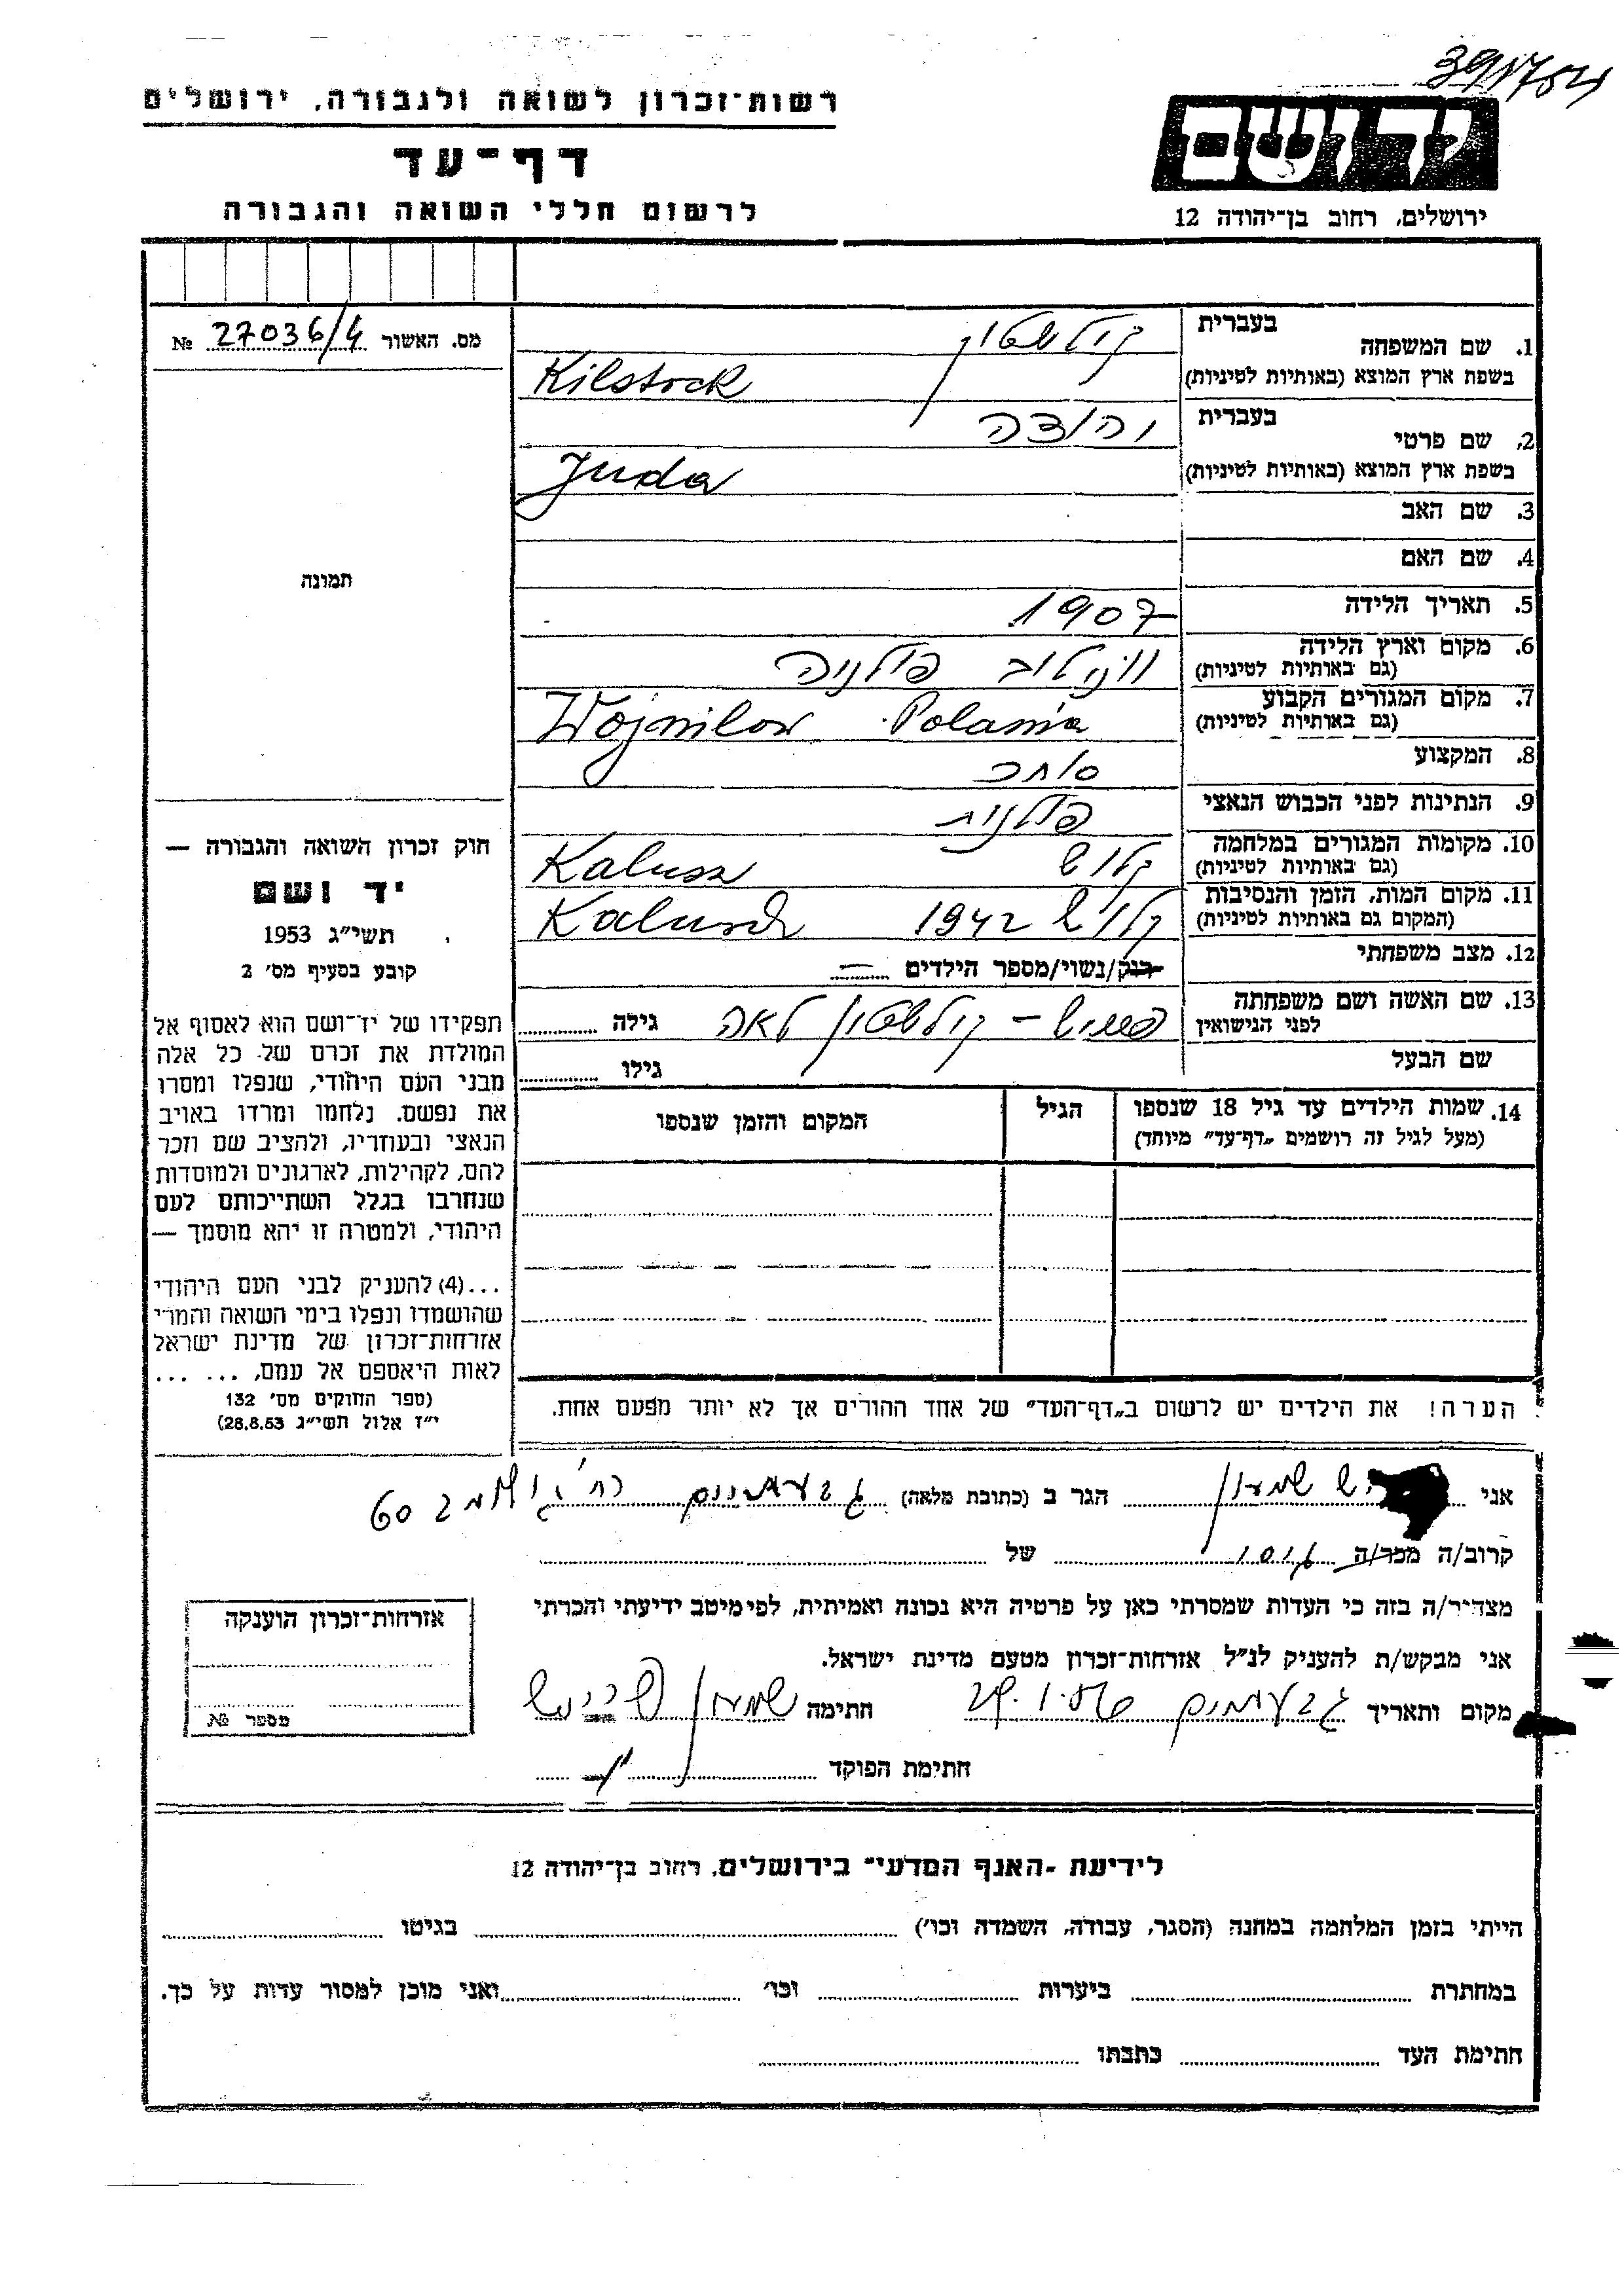 391754
רשות־זכרון לשואה ולגבורה, ירושלים
דף־עד
לרשום חללי השואה והגבורה
ידושם
ירושלים, רחוב בן־יהודה 12
מס. האשור 27036/4 №
תמונה
חוק זכרון השואה והגבורה —
יד ושם
תשי״ג 1953
קובע בסעיף מס׳ 2
תפקידו של יד־ושם הוא לאסוף אל
המולדת את זכרם של כל אלה
מבני העם היהודי, שנפלו ומסרו
את נפשם, נלחמו ומרדו באויב
הנאצי ובעוזריו, ולהציב שם וזכר
להם, לקהילות, לארגונים ולמוסדות
שנחרבו בגלל השתייכותם לעם
היהודי, ולמטרה זו יהא מוסמך —
...(4) להעניק לבני העם היהודי
שהושמדו ונפלו בימי השואה והמרי
אזרחות־זכרון של מדינת ישראל
לאות היאספם אל עמם, ... ...
(ספר החוקים מס׳ 132
י״ז אלול תשי״ג 28.8.53)
בעברית
1. שם המשפחה קילשטוק
בשפת ארץ המוצא (באותיות לטיניות) Kilstock
בעברית
2. שם פרטי יהודה
בשפת ארץ המוצא (באותיות לטיניות) Juda
3. שם האב
4. שם האם
5. תאריך הלידה 1907
6. מקום וארץ הלידה
(גם באותיות לטיניות) פולניה
7. מקום המגורים הקבוע
(גם באותיות לטיניות) Wojnilow Polania
8. המקצוע סוחר
9. הנתינות לפני הכבוש הנאצי פולנית
10. מקומות המגורים במלחמה
(גם באותיות לטיניות) קלוש Kalusz
11. מקום המות, הזמן והנסיבות
(המקום גם באותיות לטיניות) קלוש 1942
12. מצב משפחתי
רוק/נשוי/מספר הילדים —
13. שם האשה ושם משפחתה
לפני הנישואין – קילשטוק לאה גילה
שם הבעל גילו
14. שמות הילדים עד גיל 18 שנספו הגיל המקום והזמן שנספו
(מעל לגיל זה רושמים „דף־עד״ מיוחד)
הערה! את הילדים יש לרשום ב„דף־העד״ של אחד ההורים אך לא יותר מפעם אחת.
אני שמעון הגר ב (כתובת מלאה) גבעתיים רח׳ 60
קרוב/ה מכר/ה גיסו של
מצהיר/ה בזה כי העדות שמסרתי כאן על פרטיה היא נכונה ואמיתית, לפי מיטב ידיעתי והכרתי
אני מבקש/ת להעניק לנ״ל אזרחות־זכרון מטעם מדינת ישראל.
מקום ותאריך גבעתיים חתימה שמעון
חתימת הפוקד
אזרחות־זכרון הוענקה
מספר №
לידיעת „האגף המדעי״ בירושלים, רחוב בן־יהודה 12
הייתי בזמן המלחמה במחנה (הסגר, עבודה, השמדה וכו׳) בגיטו
במחתרת ביערות וכו׳ ואני מוכן למסור עדות על כך.
חתימת העד כתבתו